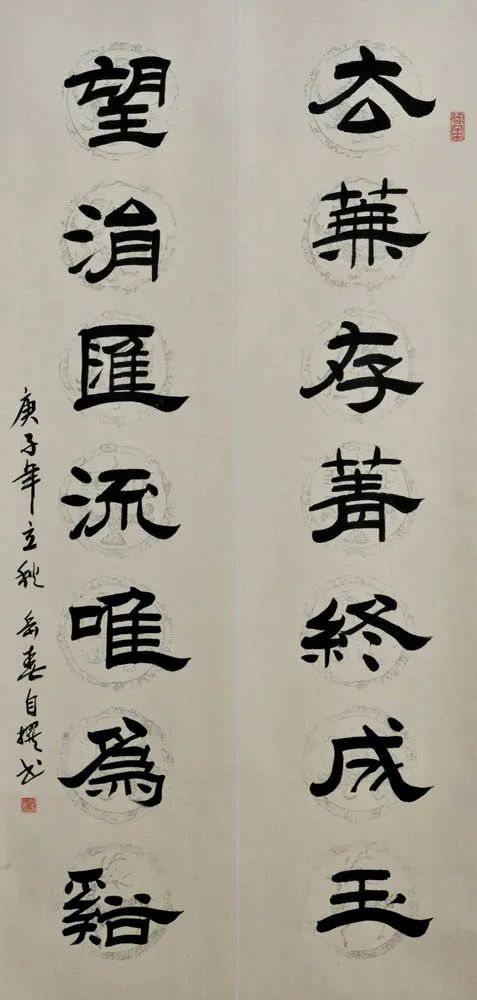 去蕪存菁終成玉
望涓匯流唯為谿
庚子年立秋岳春自撰書